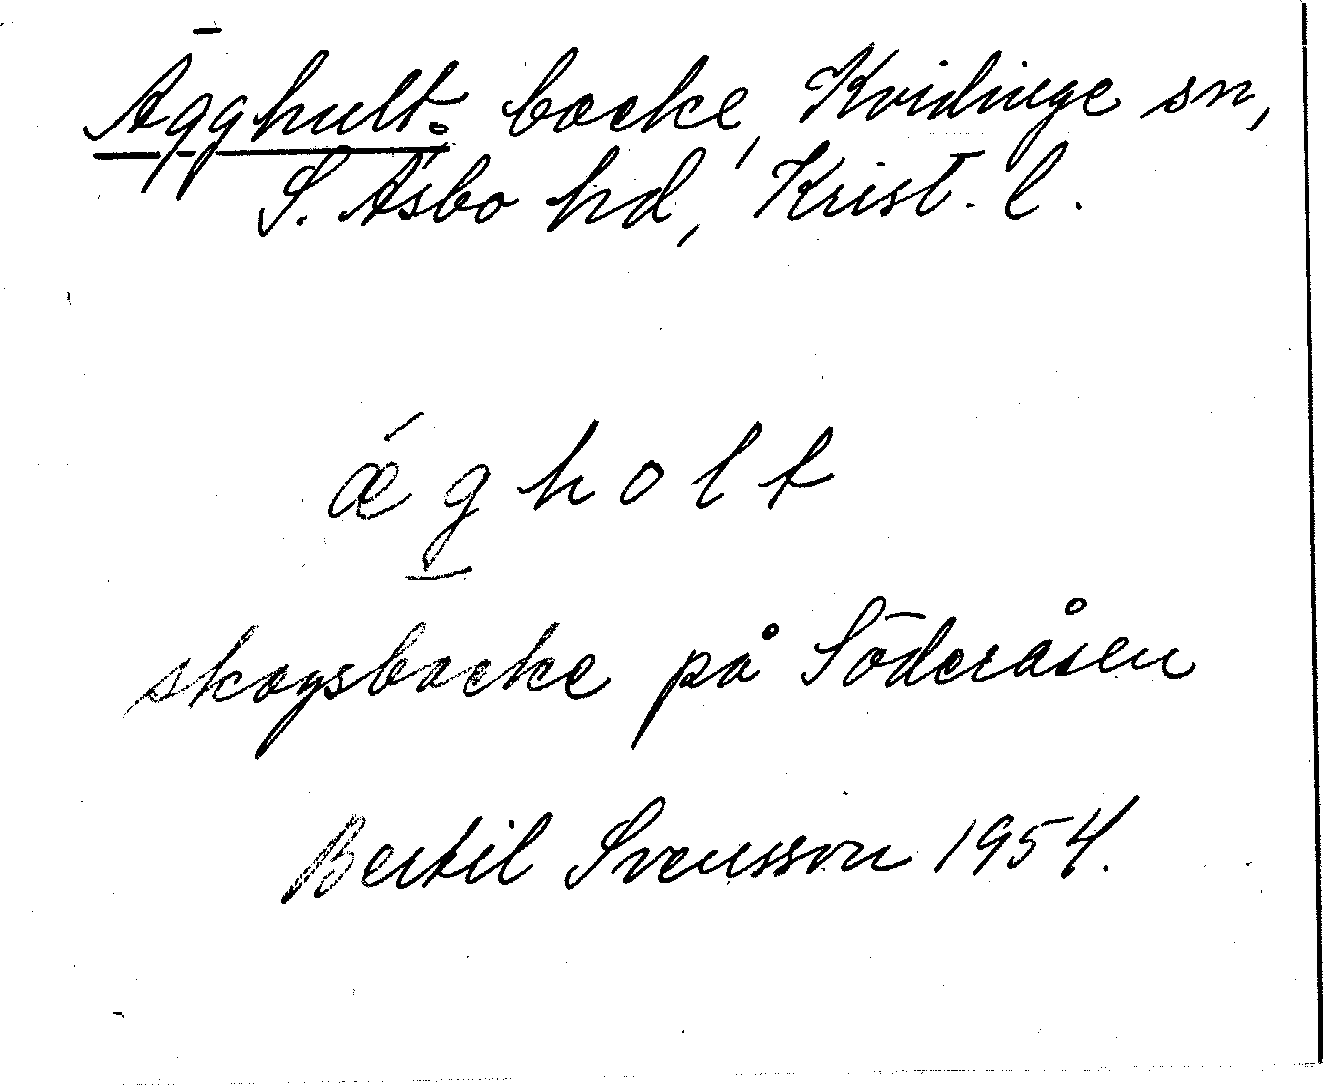 Ägghult: backe, Kvidinge sn,
S. Åsbo hd, Krist. l.
ǽg̲holt
skogsbacke på Söderåsen
Bertil Svensson 1954.